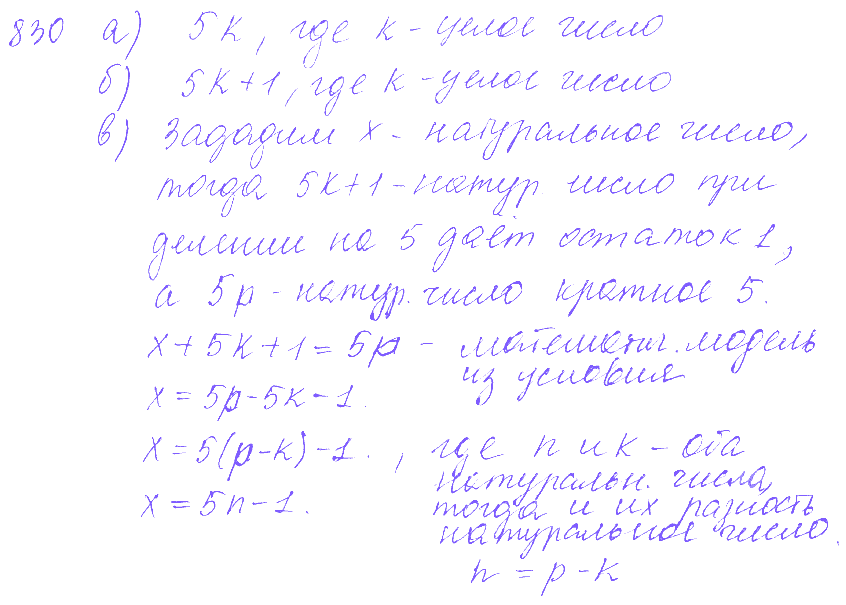 830 а) 5k, где k - целое число
б) 5k+1, где k - целое число
в) Зададим x - натуральное число,
тогда 5k+1 - натур число при
делении на 5 даёт остаток 1,
а 5p - натур. число кратное 5.
x + 5k + 1 = 5p - математич. модель
из условия
x = 5p - 5k - 1.
x = 5(p-k) - 1. , где n и k - оба
натуральн. числа,
x = 5n - 1. тогда и их разность
натуральное число.
n = p - k